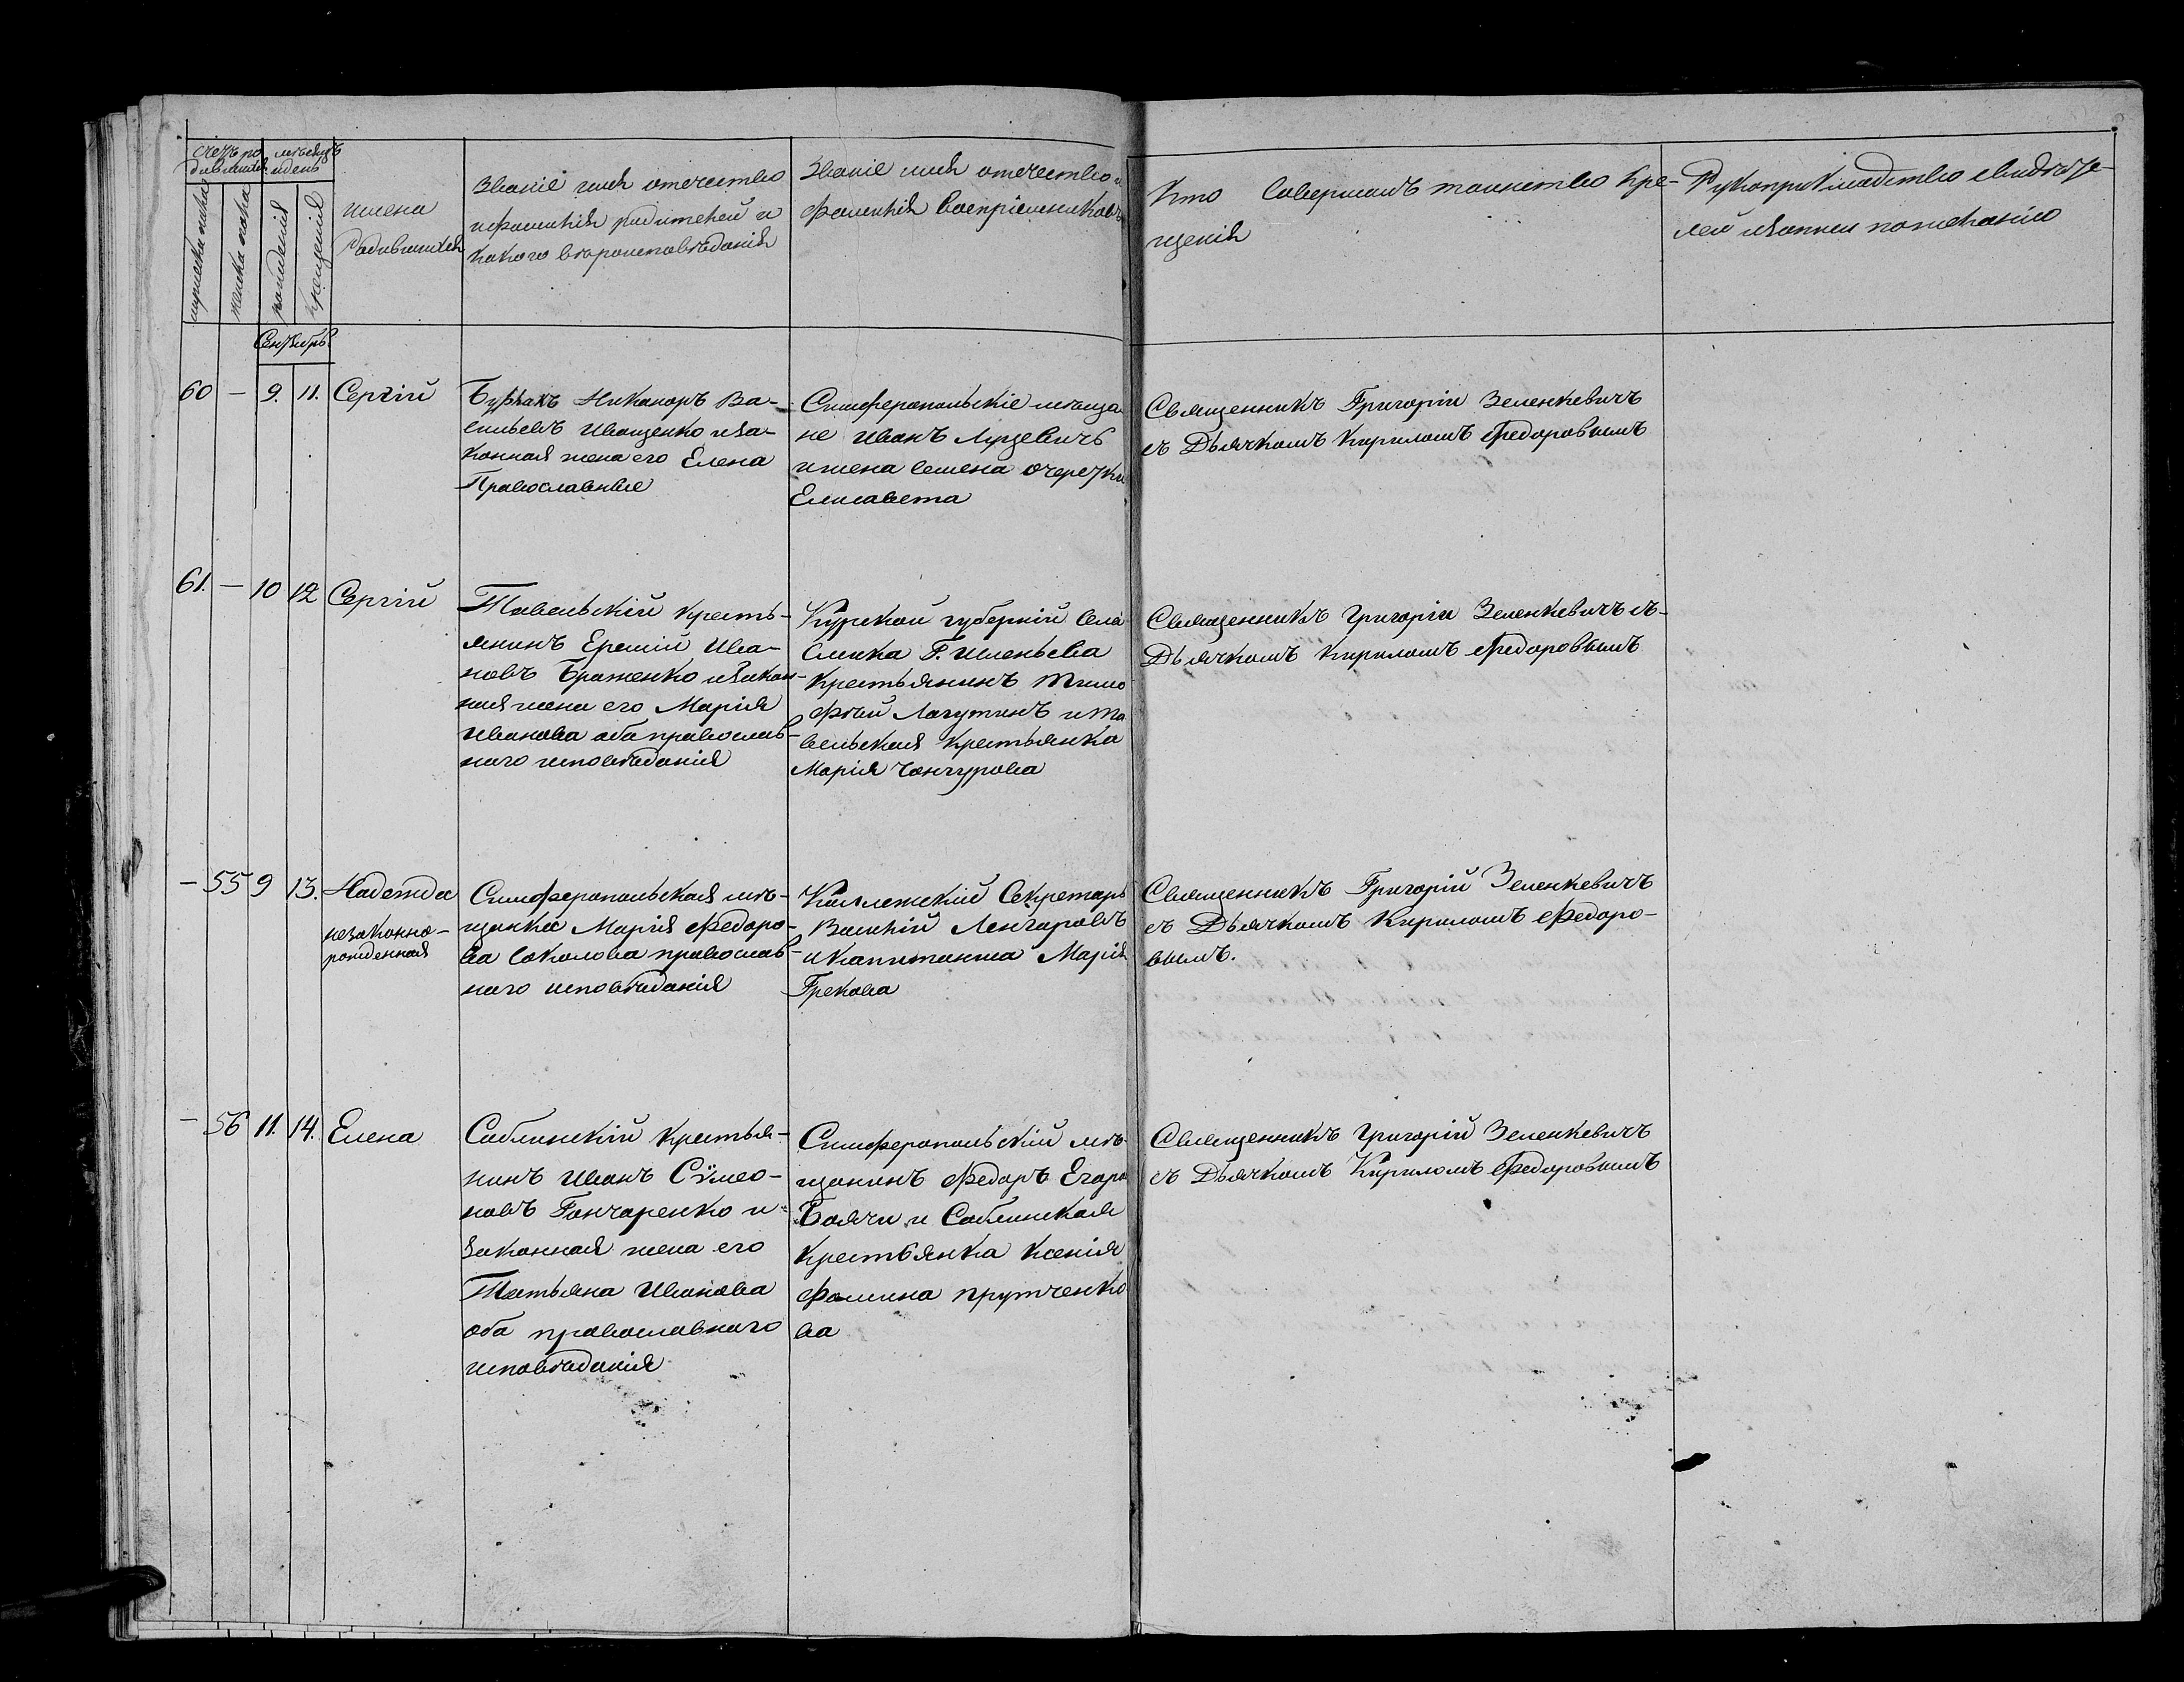 Счетъ ро
дившихся
мѣсяцъ
и день
мужеска пола
женска пола
рожденія
крещенія
имена
Родившихся
Званіе имя отечество
и фамилія родителей и
какого вѣроисповѣданія
Званіе имя отечество и
фамилія воспріемниковъ
Кто Совершалъ таинство кре-
щенія
Рукоприкладство свидѣте-
лей
Сентябрь
60 — 9. 11. Сергій
Никаноръ Ва-
сильевъ Иващенко и за-
конная жена его Елена
Православные
Симферопольскіе мѣща
не Иванъ Луцевичъ
и жена Семена
Елисавета
Священникъ Григорій Зеленкевичъ
съ Дьячкомъ Кириломъ Федоровымъ
61. — 10 12 Сергій
Тавельскій кресть-
янинъ Еремій Ива-
новъ Браженко и закон-
ная жена его Марія
Иванова оба православ-
наго исповѣданія
Курской губерніи Села
крестьянинъ Тимо
фѣй Лагутинъ и Та
вельская крестьянка
Марія Чонгурова
Священникъ Григорій Зеленкевичъ съ-
Дьячкомъ Кириломъ Федоровымъ
— 55 9 13. Надежда
незаконно-
рожденная
Симферопольская мѣ-
щанка Марія Федоро-
ва Соколова православ-
наго исповѣданія
Коллежскій Секретарь
Василій Ленгаровъ
и капитанша Марія
Грекова
Священникъ Григорій Зеленкевичъ
съ Дьячкомъ Кириломъ Федоро-
вымъ.
— 56 11. 14. Елена
Саблинскій крестья-
нинъ Иванъ Сѵмео-
новъ Гончаренко и
законная жена его
Татьяна Иванова
оба православнаго
исповѣданія
Симферопольскій мѣ-
щанинъ Федоръ Егоро
и Саблинская
крестьянка Ксенія
Фомина Прутченко
ва
Священникъ Григорій Зеленкевичъ
съ Дьячкомъ Кириломъ Федоровымъ